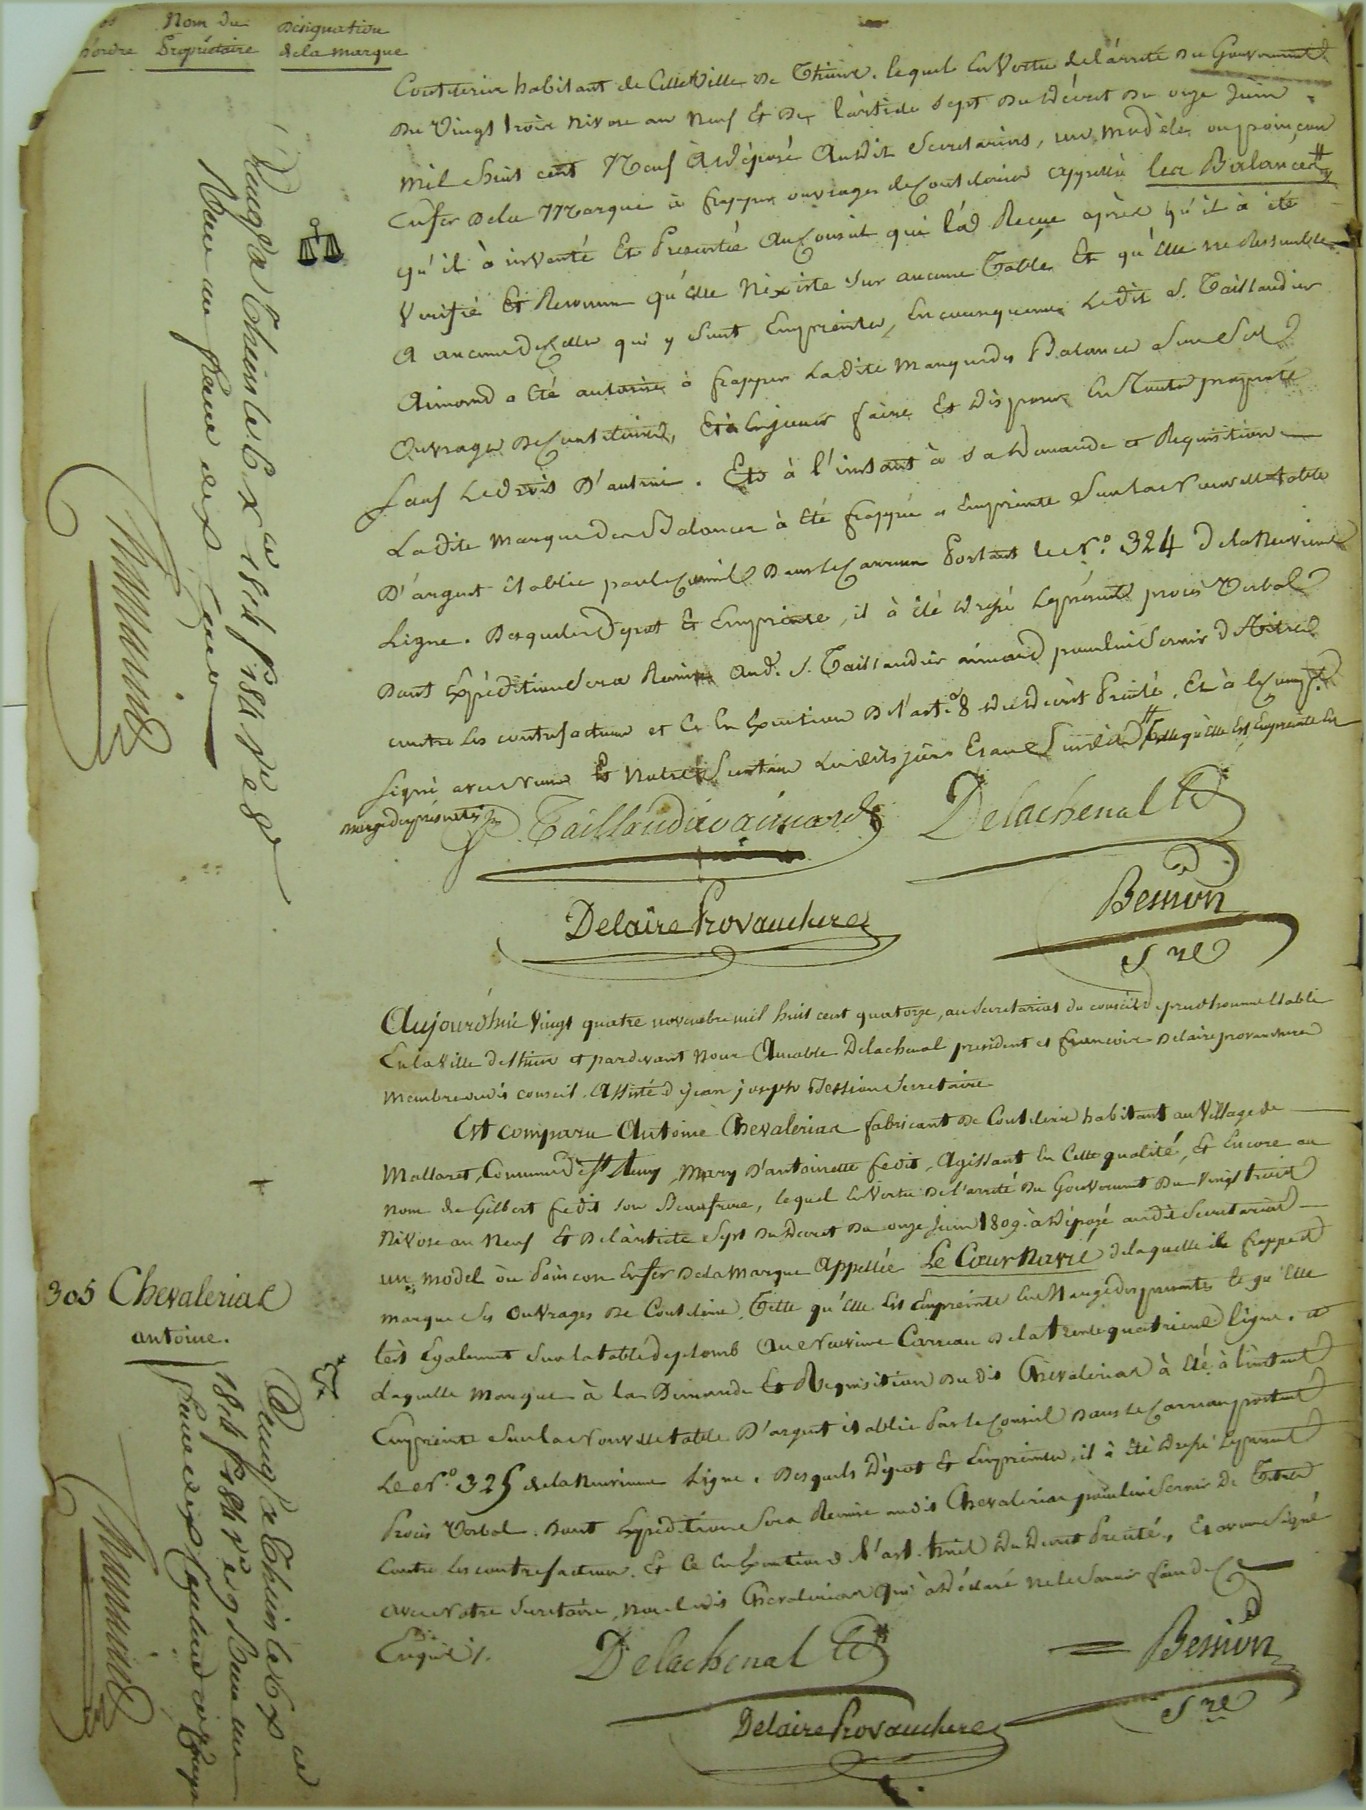 Nom du Propriétaire
Désignation de la marque
Coutelerie habitant de cette ville de Thiers. lequel En Vertu de l'arrêté du Gouvernement
du Vingt trois nivose an neuf Et de l'article Sept du décret du onze juin
mil huit cent Neuf à déposé Audit Secretariat, un modèle ou poinçon
En fer de la Marque à frapper ouvrages de Coutelerie appellée les Balances #
qu'il à inventé Et Presentée Au Conseil qui l'a Recue après qu'il à été
Verifié Et Reconnu qu'elle N'éxiste Sur aucune Table Et qu'elle ne Ressemble
A aucune de Celles qui y Sont Empreintes, En consequence Ledit S. Taillandier
Aimard a été autorisé à frapper Ladite Marque des Balances Sur Ses
Ouvrages de Coutelerie, Et à En jouir faire Et disposer En Toute propriété
Sauf Le droit D'autrui. Et à l'instant à Sa demande et Requisition
La dite Marque des Balances à été frappée et Empreinte Sur la Nouvelle table
D'argent établie par le Conseil dans le Carreau Portant le N.º 324 de la Neuvieme
Ligne. Desquels Dépot Et Empreinte, il à été dressé Le présent procès Verbal
dont Expédition Sera Remise Aud. S. Taillandier aimard pour lui Servir de Titre
contre Les contrefacteurs et Ce En Execution de l'art. 8 du décret Précité, Et à le comp.t
Signé avec Nous Et Notre Secretaire Lesdits jour Et an # Telle qu'elle Est Empreinte En
marge des présentes
Taillandier aimard
Delachenal
Delaire Provanchere
Bession
Sre
Dû enregistré à Thiers le 6 Xbre 1814 fo 182 Vo C 8
Reçu un franc dix Cent
Aujourd'hui Vingt quatre novembre mil huit cent quatorze, au Secretariat du conseil de prud'homme Etabli
En la Ville de Thiers et pardevant Nous Aimable Delachenal president et francois Delaire provanchere
Membre dudit conseil. Assisté de jean joseph Bession Secretaire
Est comparu Antoine Chevalerias fabricant de Coutelerie habitant au Village de
Mallaret, Commune de St Remy, Mary D'antoinette fedit, Agissant En Cette qualité, Et Encore au
nom de Gilbert fedit son Beaufrere, lequel En Vertu de l'arrêté du Gouvernement du Vingt trois
Nivose an Neuf Et de l'article Sept du Decret du onze juin 1809. à déposé audit Secretariat
un model ou Poinçon En fer de la Marque Appellée Le Cœur Navré de laquelle il frappe et
marque Ses Ouvrages de Coutelerie, Telle qu'elle Est Empreinte En Marge des presentes Et qu'elle
l'est Egalement Sur la table de plomb Au neuvieme Carreau de la trente quatrieme ligne. et
Laquelle Marque à la Demande Et Requisition dudit Chevalerias à été à l'instant
Empreinte Sur la Nouvelle table D'argent établie Par le Conseil Dans le Carreau portant
Le N.º 325 de la Neuvieme Ligne. Desquels Dépot Et Empreinte, il à été dressé Le present
Procès Verbal. Dont Expedition Sera Remise audit Chevalerias pour lui Servir De Titre
Contre Les contrefacteurs. Et Ce En Execution de l'art. huit Du Decret Précité, Et avons Signé
avec Notre Secretaire, Non ledit Chevalerias Qui à déclaré ne le Savoir faire de Ce
Enquis.
305 Chevalerias
antoine.
Delachenal
Bession
Sre
Delaire Provanchere